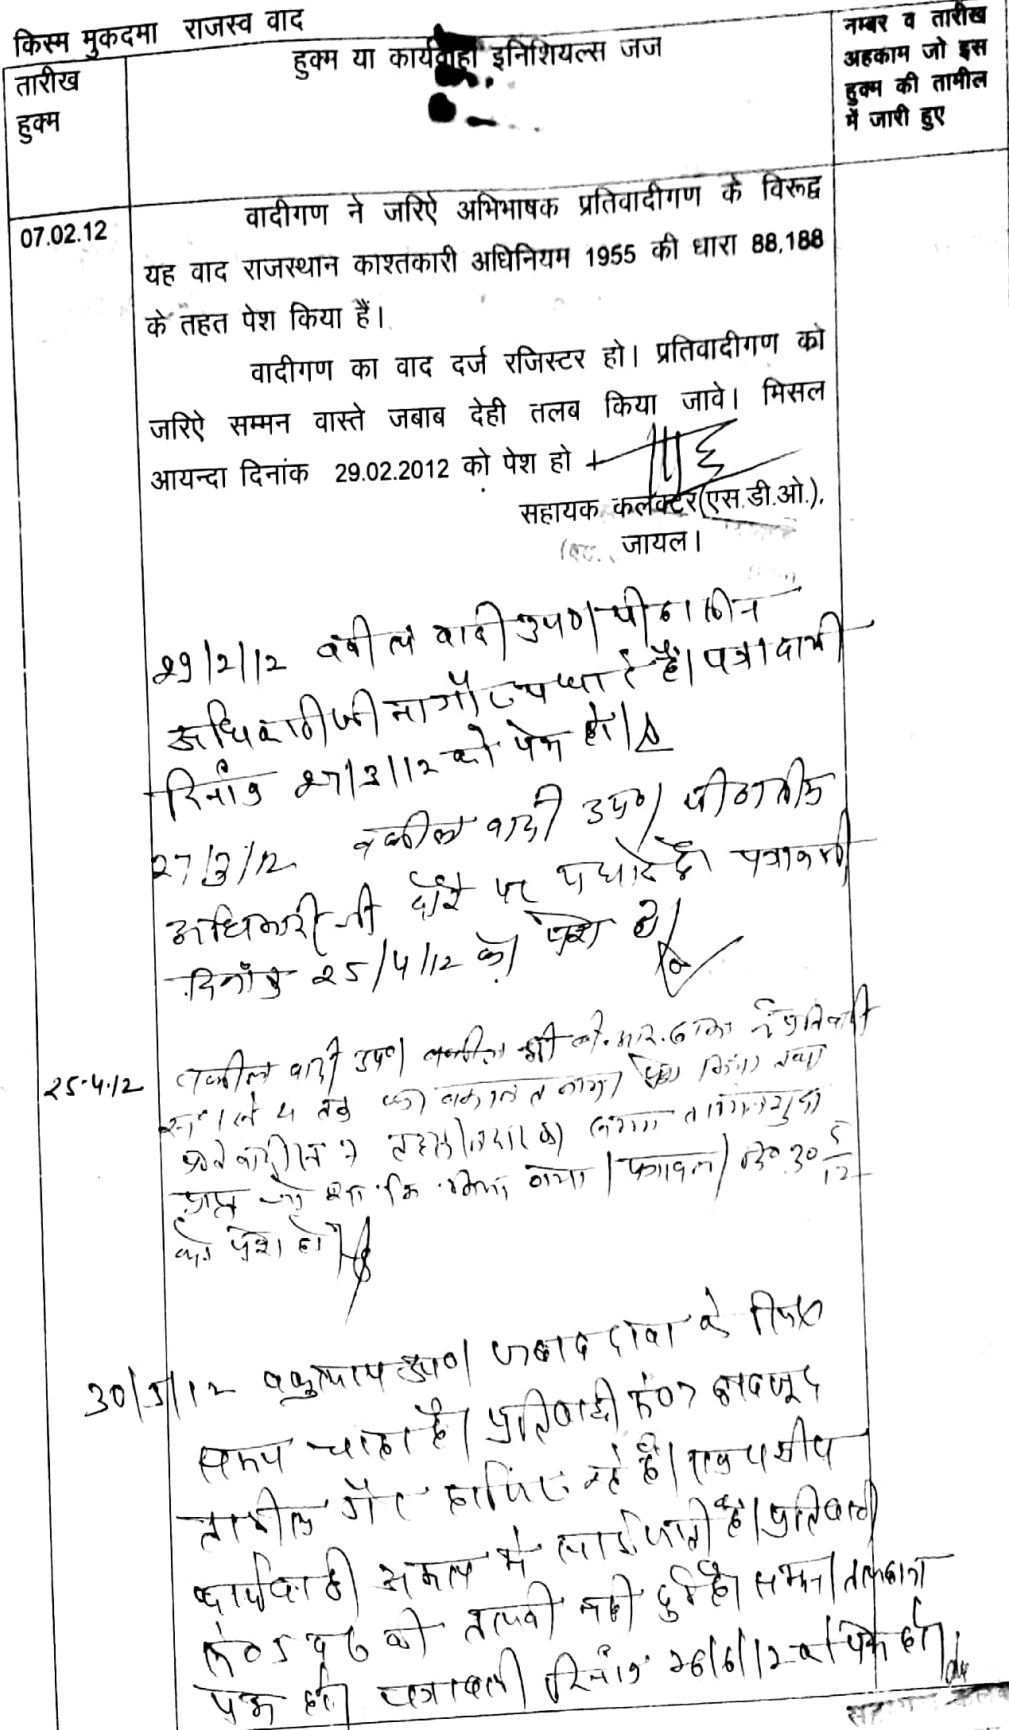 किस्म मुकदमा राजस्व वाद
तारीख हुक्म
हुक्म या कार्यवाही इनिशियल्स जज
नम्बर व तारीख
अहकाम जो इस
हुक्म की तामील
में जारी हुए
07.02.12
वादीगण ने जरिऐ अभिभाषक प्रतिवादीगण के विरूद्व
यह वाद राजस्थान काश्तकारी अधिनियम 1955 की धारा 88,188
के तहत पेश किया हैं।
वादीगण का वाद दर्ज रजिस्टर हो। प्रतिवादीगण को
जरिऐ सम्मन वास्ते जबाब देही तलब किया जावे। मिसल
आयन्दा दिनांक 29.02.2012 को पेश हो
सहायक कलेक्टर(एस.डी.ओ.),
जायल।
29/2/12 वकील वादी उप० पीठासीन
अधिकारी जी नागौर पधारे हैं। पत्रावली
दिनांक 27/3/12 को पेश हो।
27/3/12 वकील वादी उप० पीठासीन
अधिकारी जी दौरे पर पधारे है। पत्रावली
दिनांक 25/4/12 को पेश हो।
25.4.12 वकील वादी उप० वकील श्री प्रतिवादी
4
प्राप्त पत्रावली दि० 30 5/12
को पेश हो
30/5/12 उप० जबाब दावा के लिए
समय चाहा है। प्रतिवादी सं० 7 बावजूद
तामील गैर हाजिर रहे है। एक पक्षीय
कार्यवाही अमल मे लाई जाती है। प्रतिवादी
सं० 5 व 6 की तलबी नही हुई है। सम्मन तलबाना
पेश हो। पत्रावली दिनांक 26/6/12 को पेश हो।